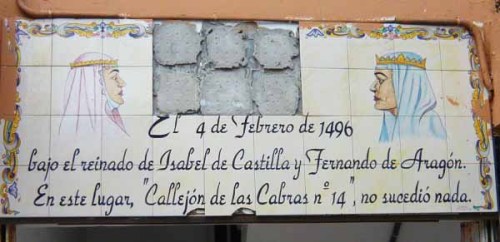 El 4 de Febrero de 1496
bajo el reinado de Isabel de Castilla y Fernando de Aragón.
En este lugar, "Callejón de las Cabras nº 14", no sucedió nada.